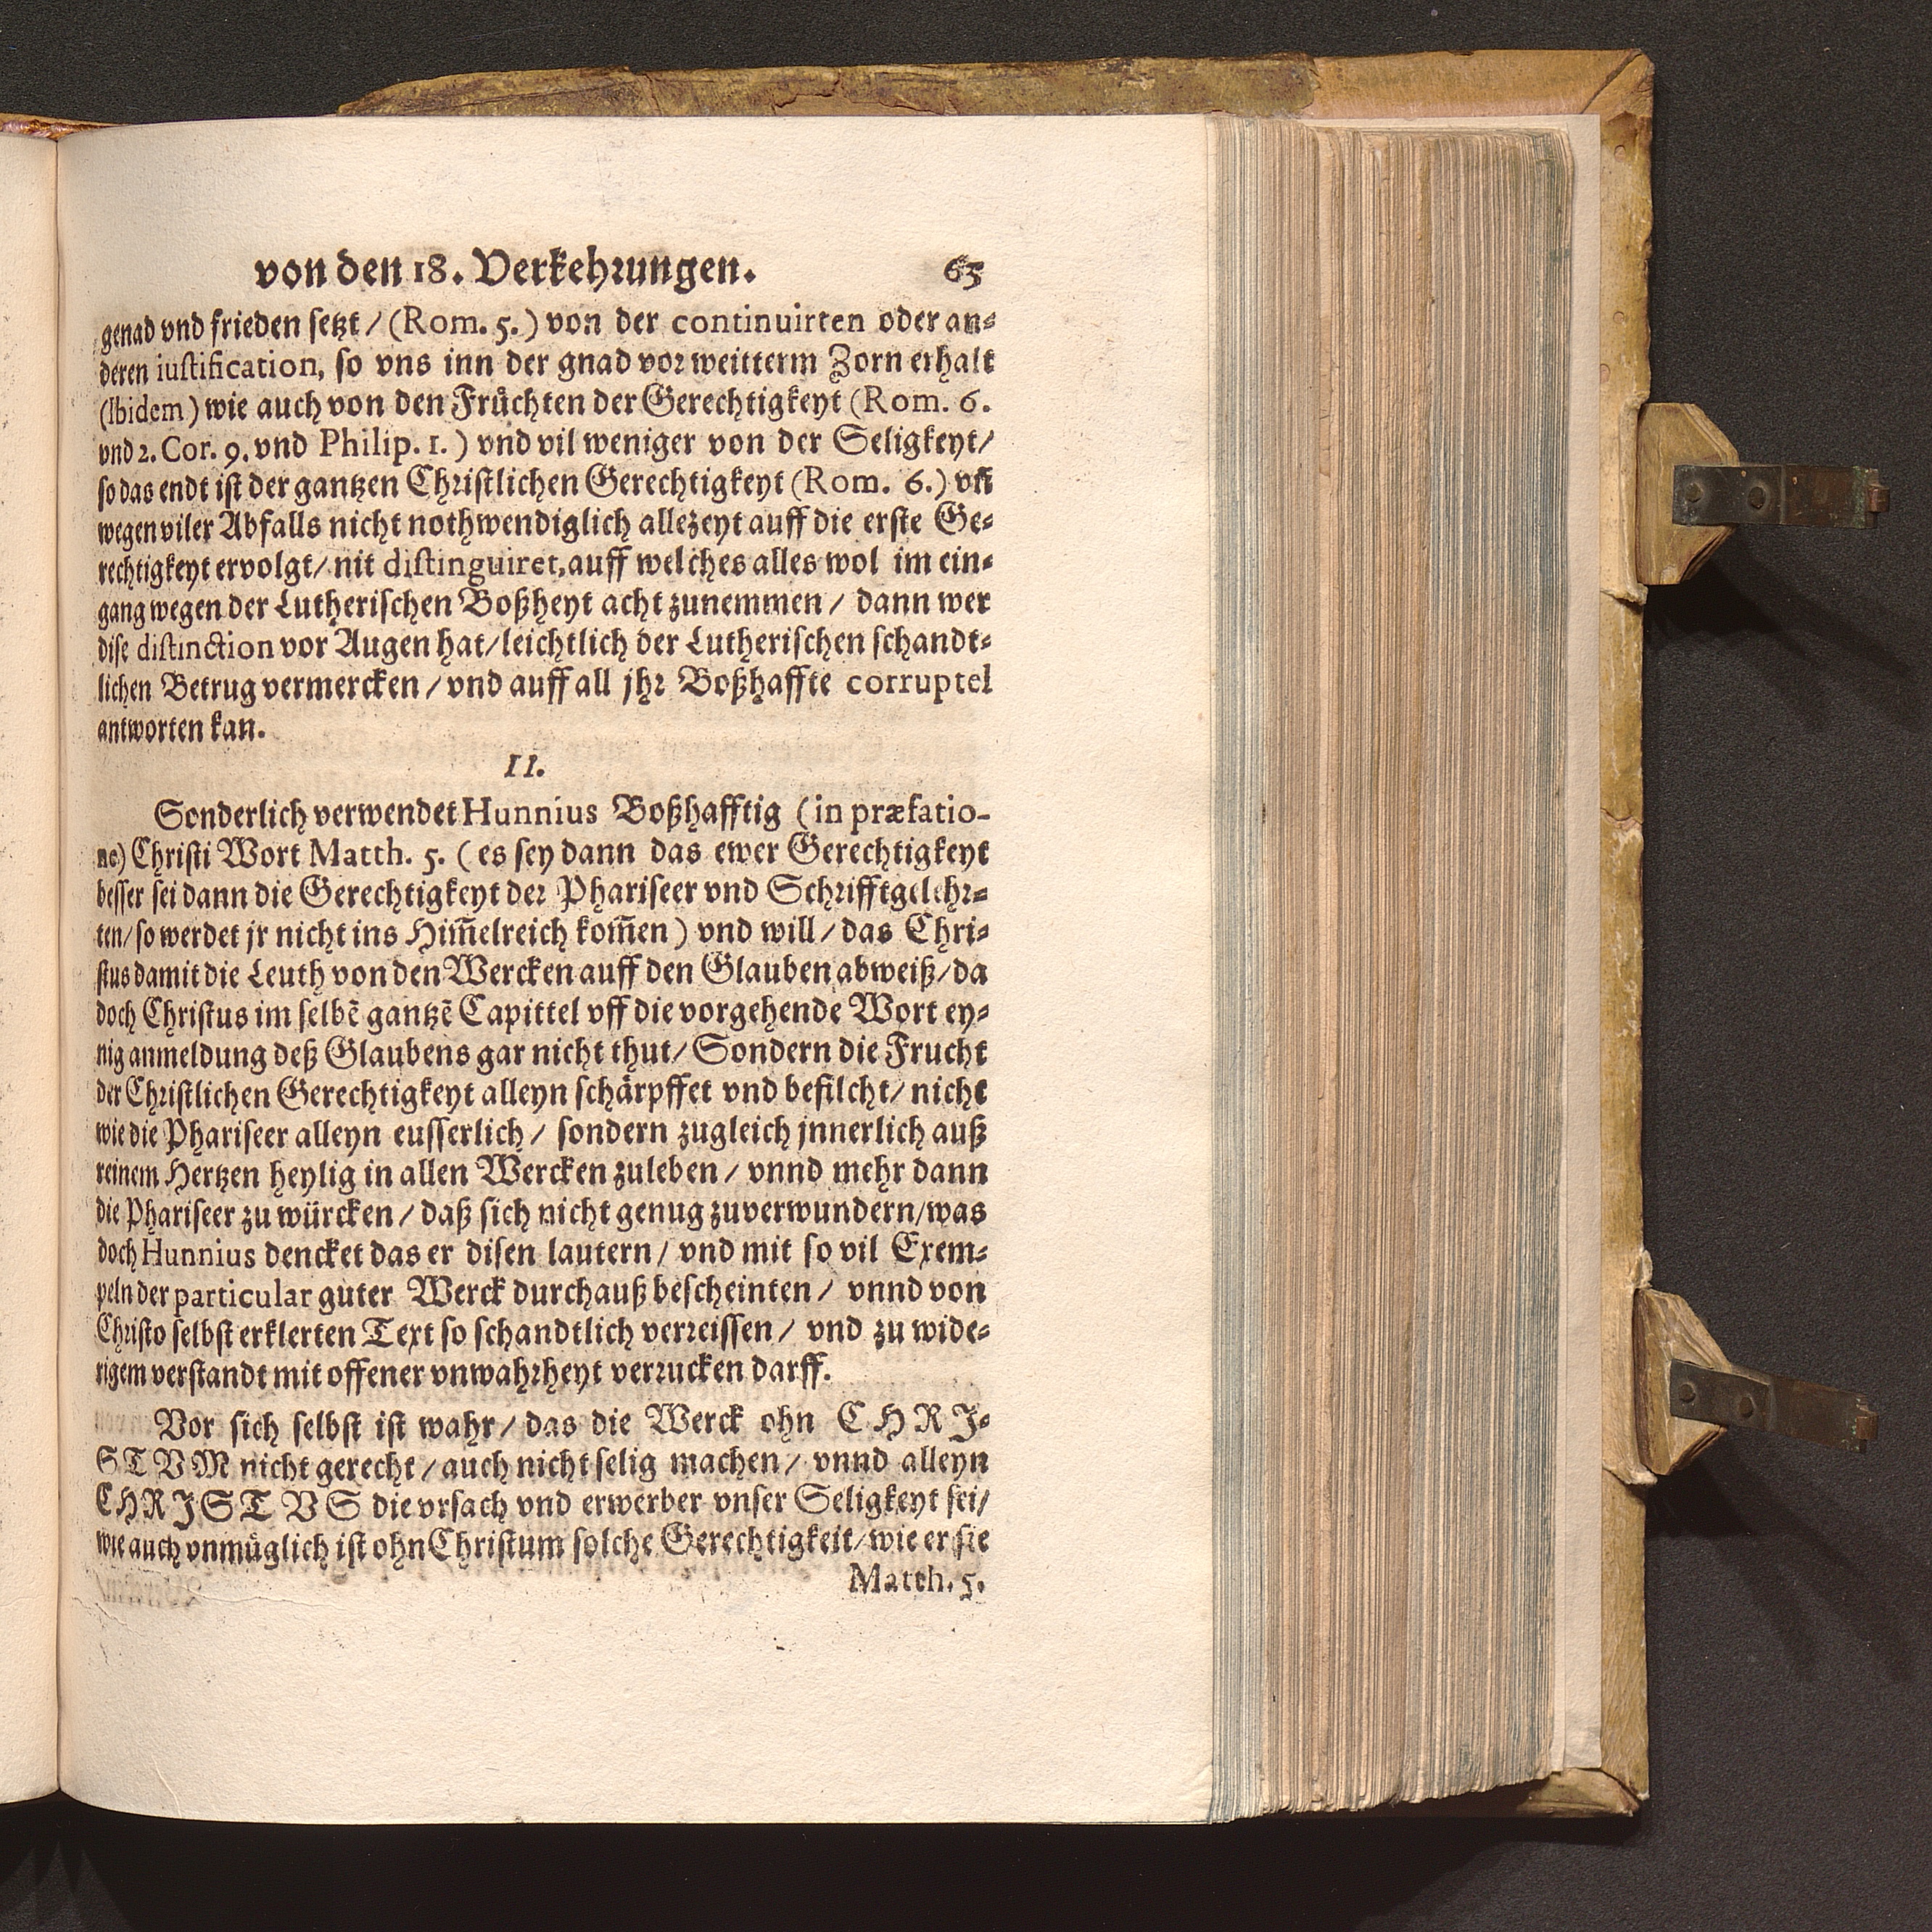 von den 18. Verkehrungen. 65
genad vnd frieden setzt / (Rom. 5.) von der continuirten oder an⸗
deren iustification, so vns inn der gnad vor weitterm Zorn erhalt
(Ibidem) wie auch von den Früchten der Gerechtigkeyt (Rom. 6.
vnd 2. Cor. 9. vnd Philip. 1.) vnd vil weniger von der Seligkeyt/
so das endt ist der gantzen Christlichen Gerechtigkeyt (Rom. 6.) vñ
wegen viler Abfalls nicht nothwendiglich allezeyt auff die erste Ge⸗
rechtigkeyt ervolgt/ nit distinguiret, auff welches alles wol im ein⸗
gang wegen der Lutherischen Boßheyt acht zunemmen / dann wer
dise distinction vor Augen hat/ leichtlich der Lutherischen schandt⸗
lichen Betrug vermercken / vnd auff all jhr Boßhaffte corruptel
antworten kan.
II.
Sonderlich verwendet Hunnius Boßhafftig (in præfatio-
ne) Christi Wort Matth. 5. (es sey dann das ewer Gerechtigkeyt
besser sei dann die Gerechtigkeyt der Phariseer vnd Schrifftgelehr⸗
ten/ so werdet jr nicht ins Him̃elreich kom̃en) vnd will / das Chri⸗
stus damit die Leuth von den Wercken auff den Glauben abweiß/ da
doch Christus im selbẽ gantzẽ Capittel vff die vorgehende Wort ey⸗
nig anmeldung deß Glaubens gar nicht thut/ Sondern die Frucht
der Christlichen Gerechtigkeyt alleyn schärpffet vnd befilcht/ nicht
wie die Phariseer alleyn eusserlich / sondern zugleich jnnerlich auß
reinem Hertzen heylig in allen Wercken zuleben / vnnd mehr dann
die Phariseer zu würcken / daß sich nicht genug zuverwundern/ was
doch Hunnius dencket das er disen lautern / vnd mit so vil Exem⸗
peln der particular guter Werck durchauß bescheinten / vnnd von
Christo selbst erklerten Text so schandtlich verreissen / vnd zu wide⸗
rigem verstandt mit offener vnwahrheyt verrucken darff.
Vor sich selbst ist wahr / das die Werck ohn CHRI⸗
STVM nicht gerecht / auch nicht selig machen / vnnd alleyn
CHRISTVS die vrsach vnd erwerber vnser Seligkeyt sei/
wie auch vnmüglich ist ohn Christum solche Gerechtigkeit/ wie er sie
Matth. 5.